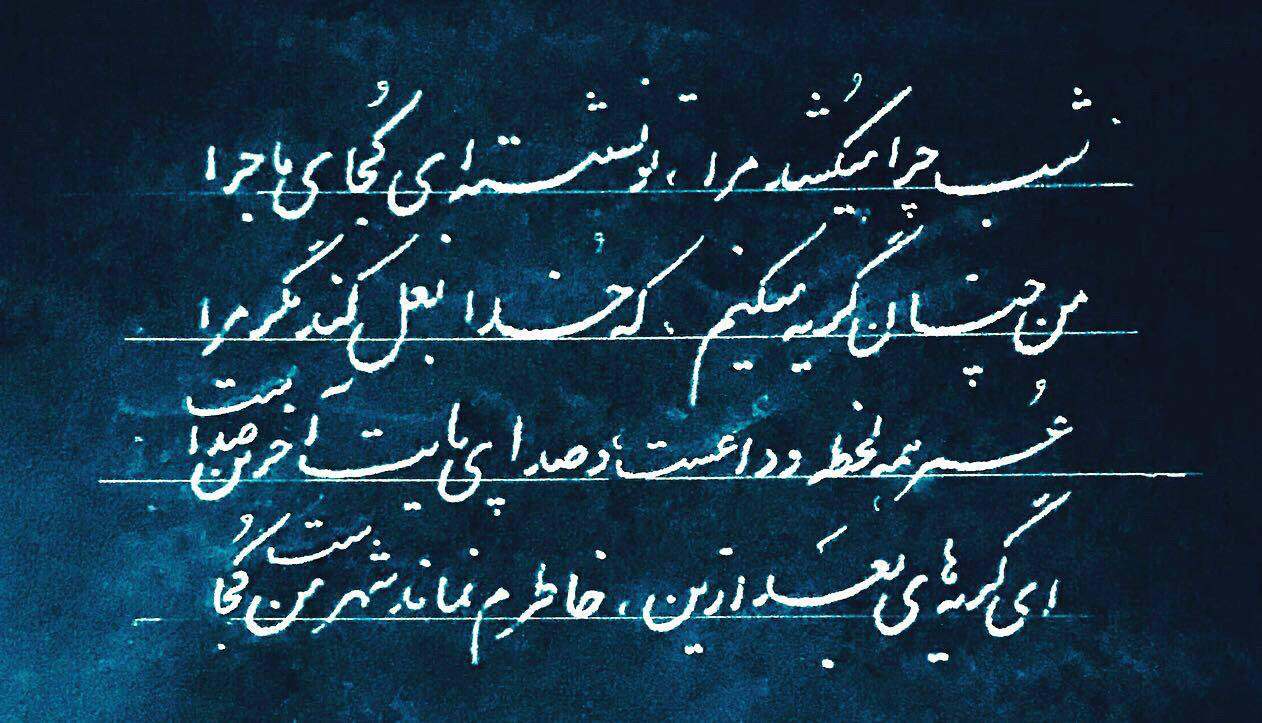 شب چرا میکُشد مرا ، تو نشسته ای کُجای ماجرا
من چنان گریه میکنم ، که خُدا بغل کند مگر مرا
عُمر همه لحظه وداعست و صدا پی پایت آخرین صداست
ای گریه های بعد ازین ، خاطرم نماند شهرِ من کُجاست